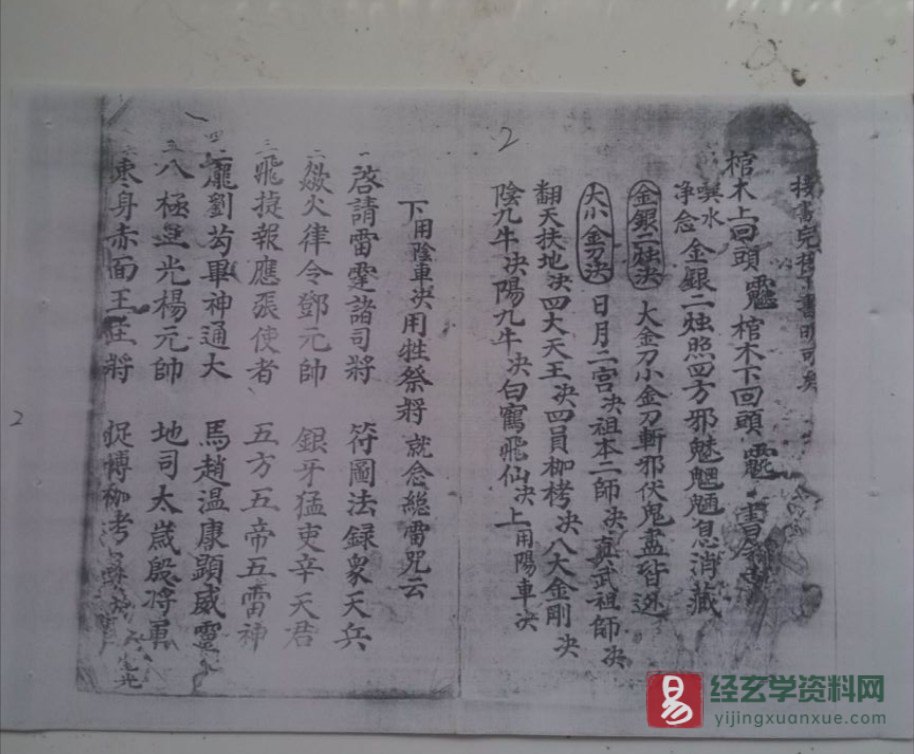 棺木上回頭 棺木下回頭
噀水
净念 金銀二烛照四方邪魅魍魎息消藏
金銀二烛决 大金刀小金刀斬邪伏鬼盡皆
大小金刀决 日月二宫决祖本二師决真武祖師决
翻天扶地决四大天王决四員枷栲决八大金剛决
陰九牛决陽九牛决白鶴飛仙决上用陽車决
2
下用陰車决用牲祭將就念總雷咒云
一 啓請雷霆諸司將 符圖法録衆天兵
二 歘火律令鄧元帥 銀牙猛吏辛天君
三 飛捷報應張使者 五方五帝五雷神
四 龐劉苟畢神通大 馬趙温康顕威靈
五 八極 光楊元帥 地司太歳殷將軍
身赤面王 將 捉縛枷考
2
易
经玄学资料网
yijingxuanxue.com